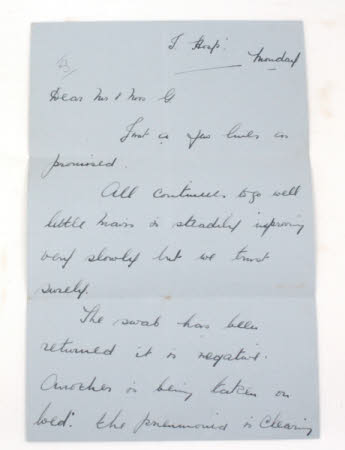 I. Hosp.
Monday
Dear Mr & Mrs G
Just a few lines as
promised.
All continues to go well
little Mavis is steadily improving
very slowly but we trust
surely.
The swab has been
returned it is negative.
Another is being taken on
Wed: the pneumonia is clearing